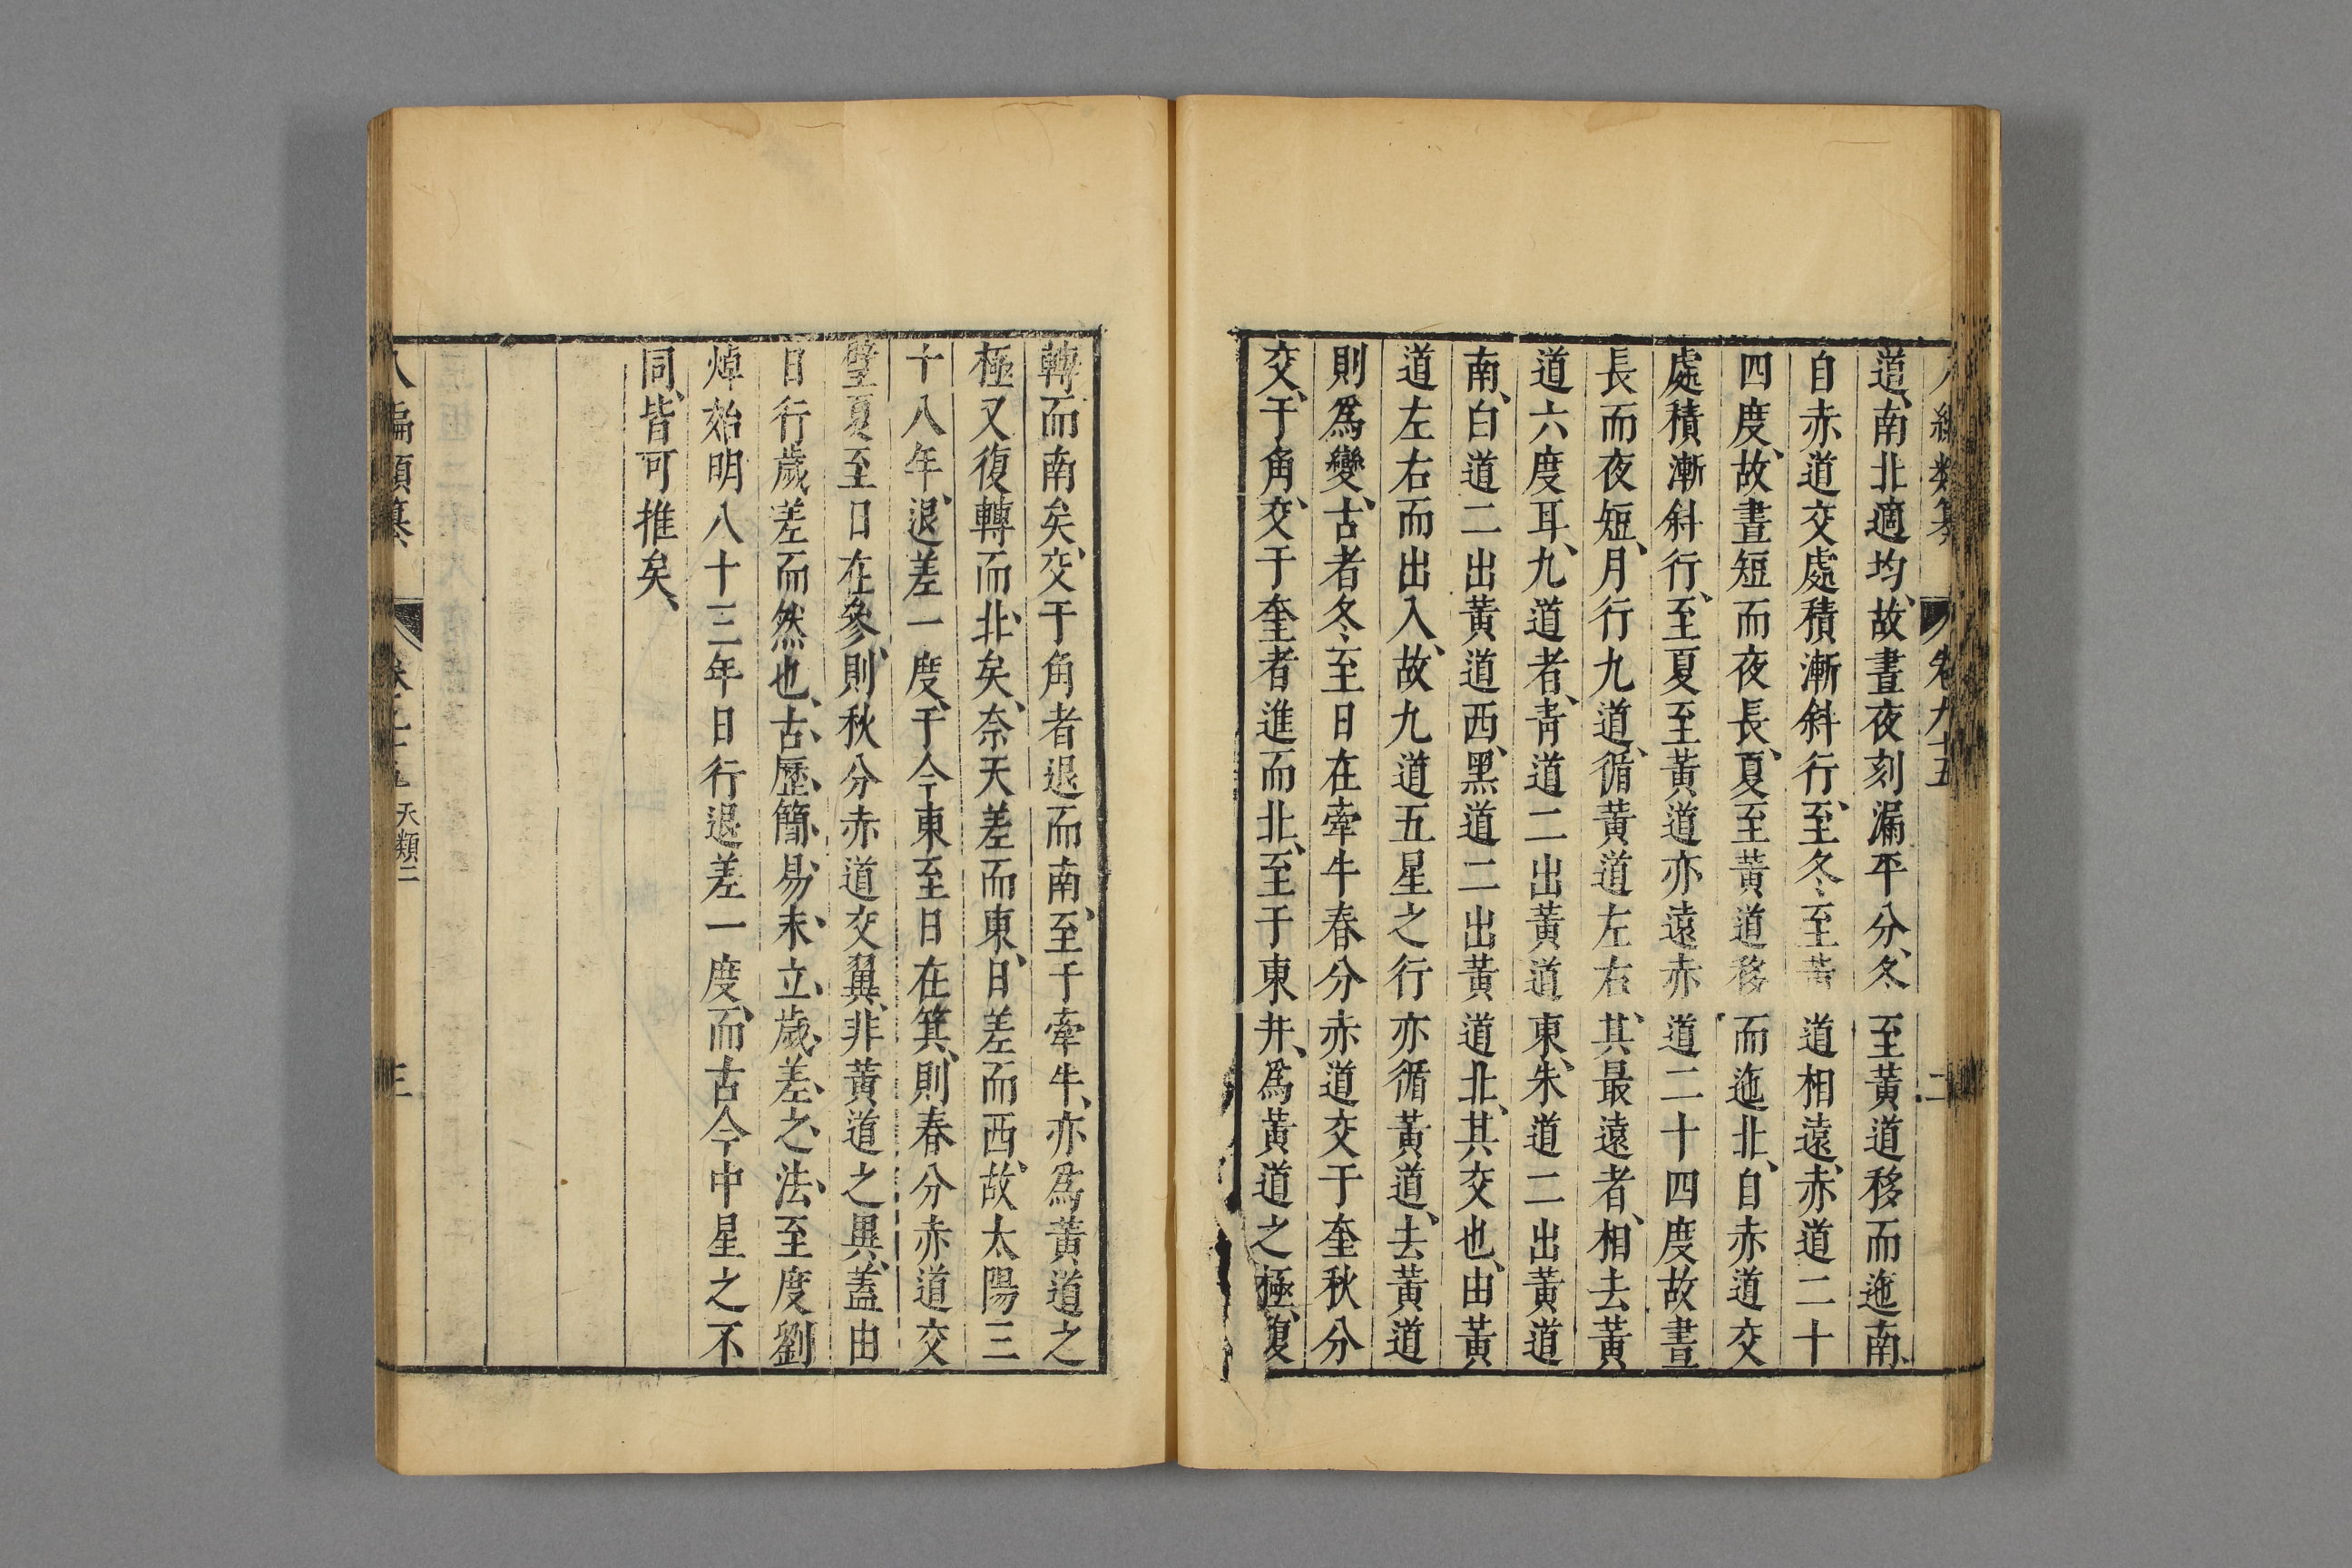 道、南北適均、故晝夜刻漏平分、冬至黃道移而迤南、
自赤道交處積漸斜行、至冬至黃道相遠赤道二十
四度、故晝短而夜長、夏至黃道移而迤北、自赤道交
處積漸斜行、至夏至黃道亦遠赤道二十四度故晝
長而夜短、月行九道、循黃道左右、其最遠者、相去黃
道六度耳、九道者、青道二出黃道東、朱道二出黃道
南、白道二出黃道西、黑道二出黃道北、其交也、由黃
道左右而出入、故九道五星之行亦循黃道、去黃道
則爲變、古者冬至日在牽牛春分赤道交于奎秋分
交于角、交于奎者進而北、至于東井、爲黃道之極、復
轉而南矣、交于角者退而南、至于牽牛、亦爲黃道之
極又復轉而北矣、奈天差而東、日差而西、故太陽三
十八年、退差一度、于今東至日在箕、則春分赤道交
壁夏至日在參、則秋分赤道交翼、非黃道之異、蓋由
日行歲差而然也、古歷簡易、未立歲差之法、至度劉
焯始明八十三年日行退差一度、而古今中星之不
同、皆可推矣、
八編類纂 卷九十五 天類二 三